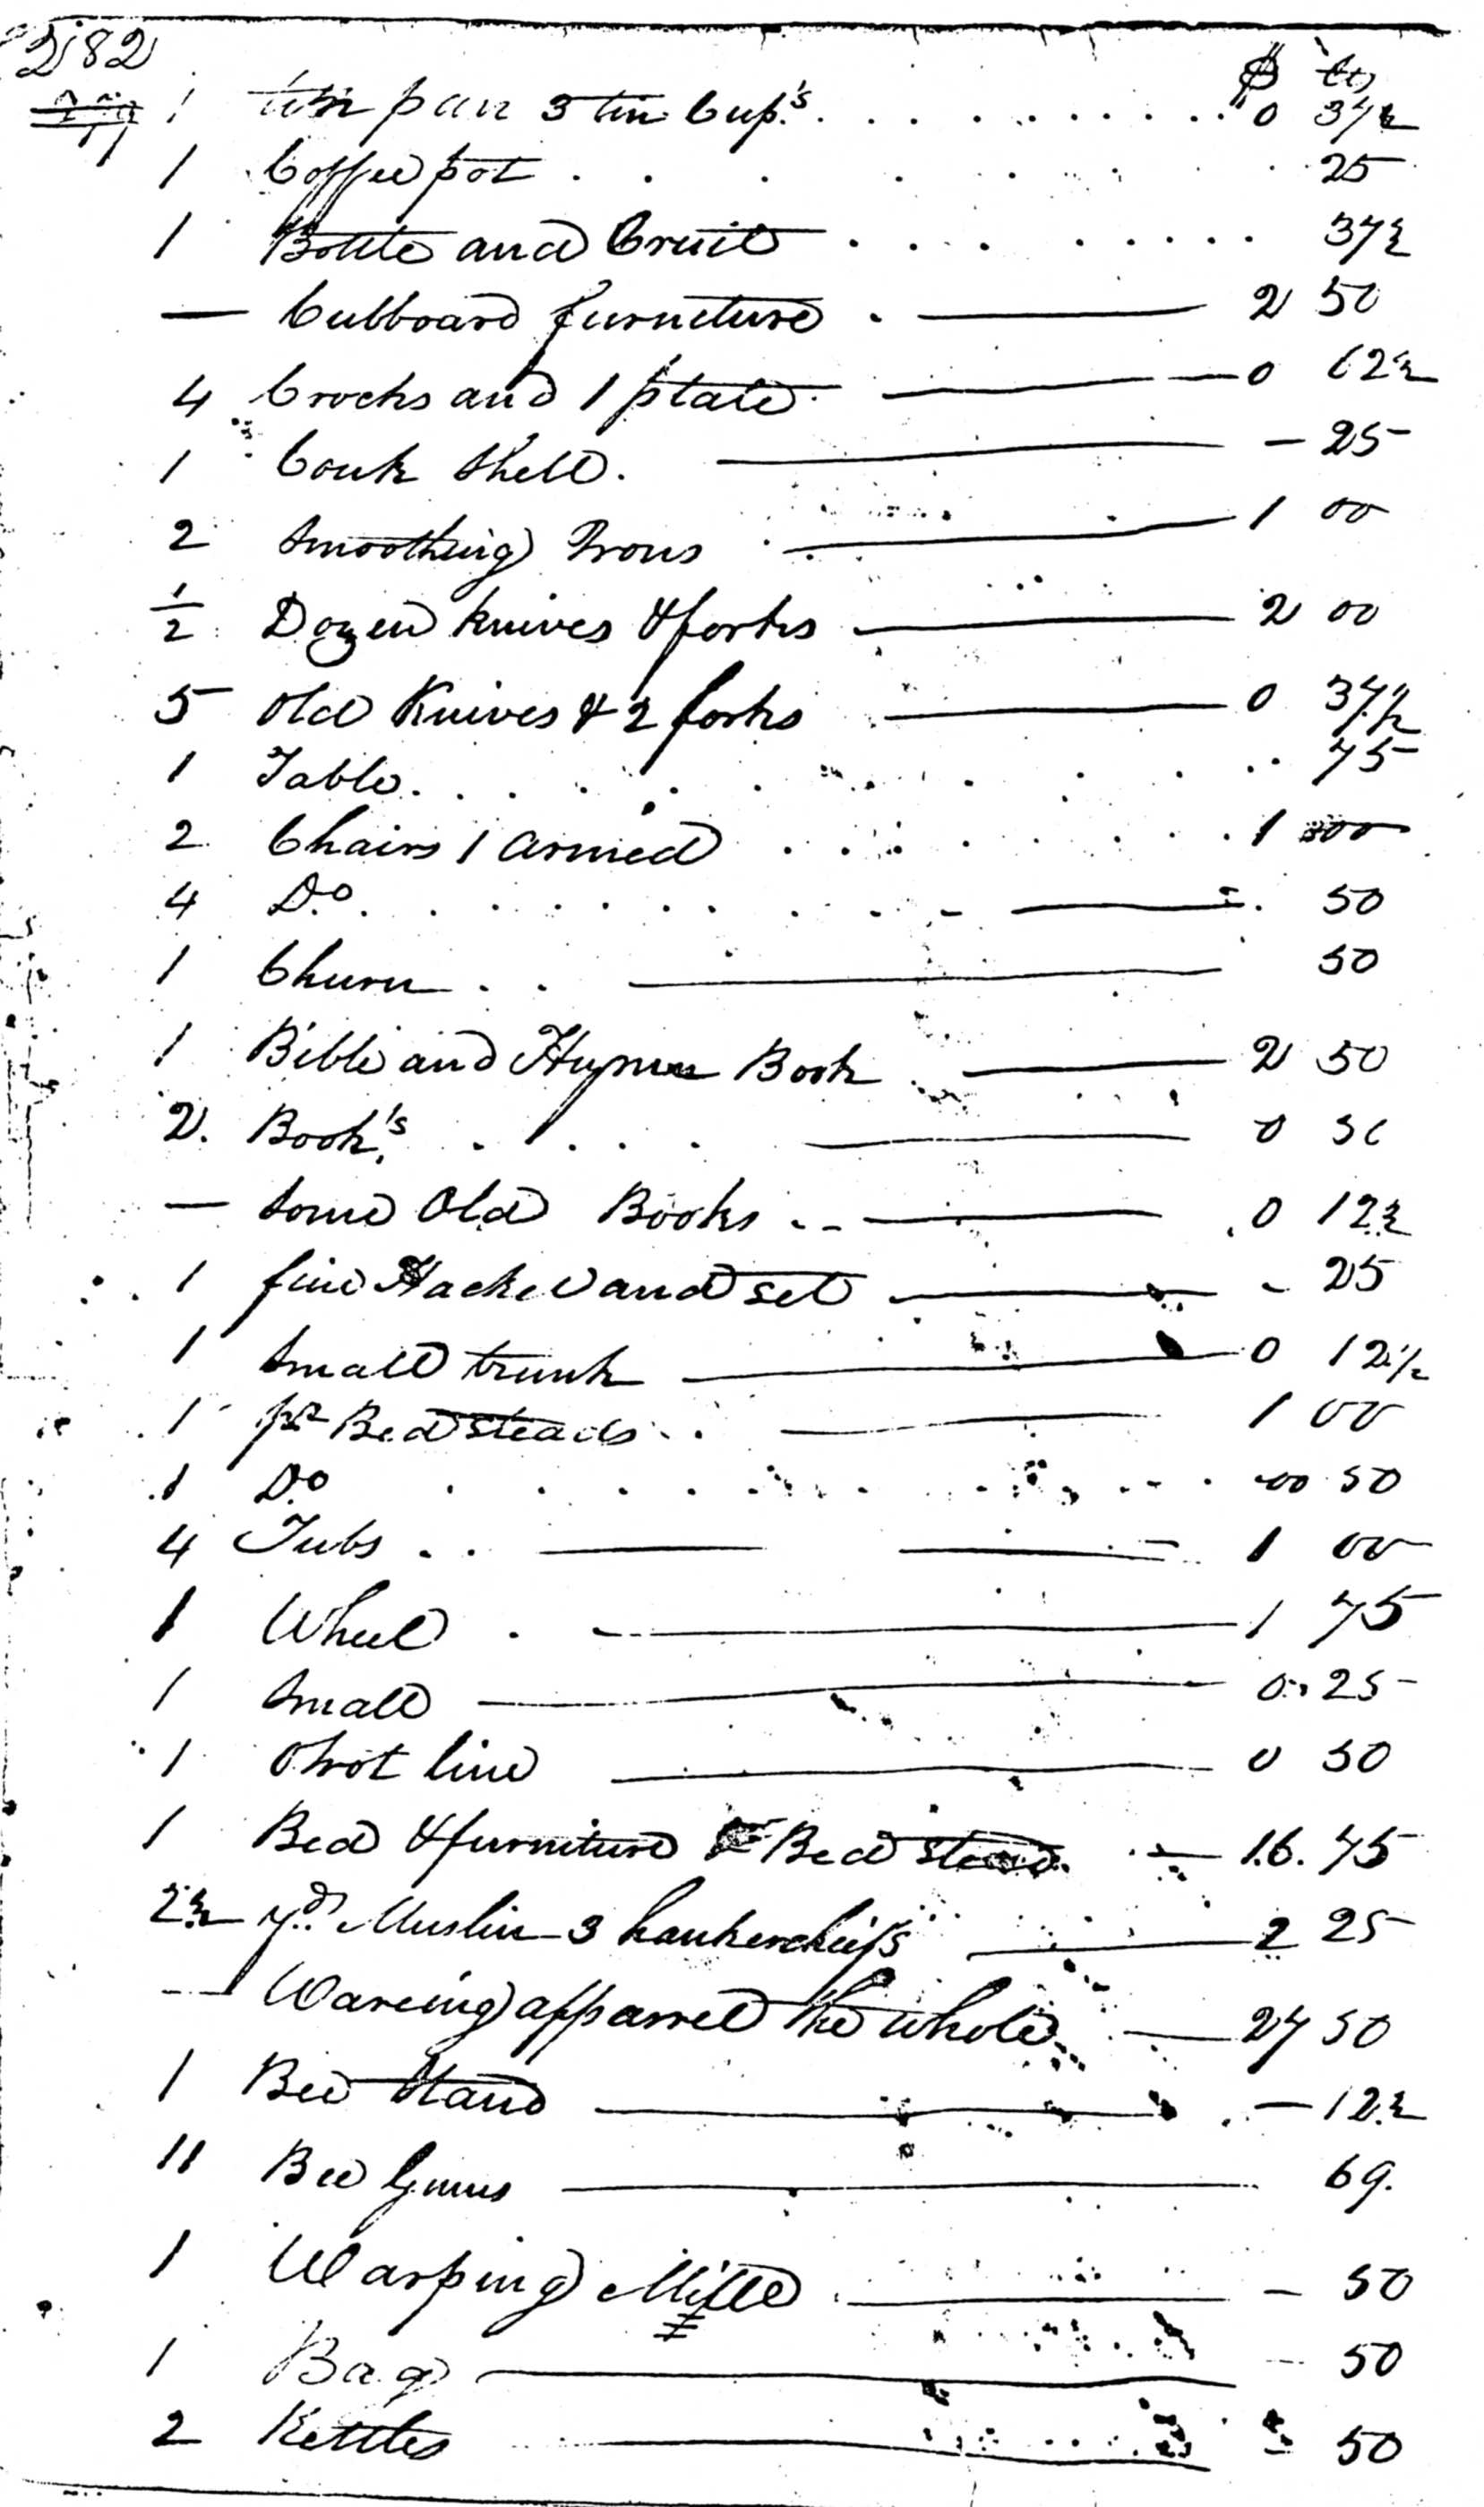 282
$ Cts
1 tin pan 3 tin Cup's . . . . . . . . . . 0 37½
1 Coffee pot . . . . . . . 25
1 Bottle and Cruit . . . . . . . . . 37½
— Cubboard furniture . — 2 50
4 Crocks and 1 plate — 0 62½
1 Conk Shell. — 25
2 Smoothing Irons — 1 00
½ Dozen knives & forks — 2 00
5 old Knives & 2 forks — 0 37½
1 Table . . . . . . . . . . 75
2 Chairs 1 armed . . . . . . . 1 00
4 Do . . . . . . . . — 50
1 Churn . . — 50
1 Bible and Hymn Book — 2 50
2 Book's . . . . — 0 50
— Some Old Books — 0 12½
1 fine Hackel and set — 25
1 Small trunk — 0 12½
1 pr Bedsteads . . — 1 00
1 Do . . . . . . . . . 00 50
4 Tubs . . — 1 00
1 Wheel . — 1 75
1 Small — 0 25
1 line — 0 50
1 Bed & furniture & Bed stead — 16.75
2½ yd Muslin 3 hankercheifs — 2 25
— Wareing apparrel the whole — 27 50
1 Bee Stand — 12½
11 Bee Gums — 69.
1 Warping Mill — 50
1 Bag — 50
2 Kettles — 50